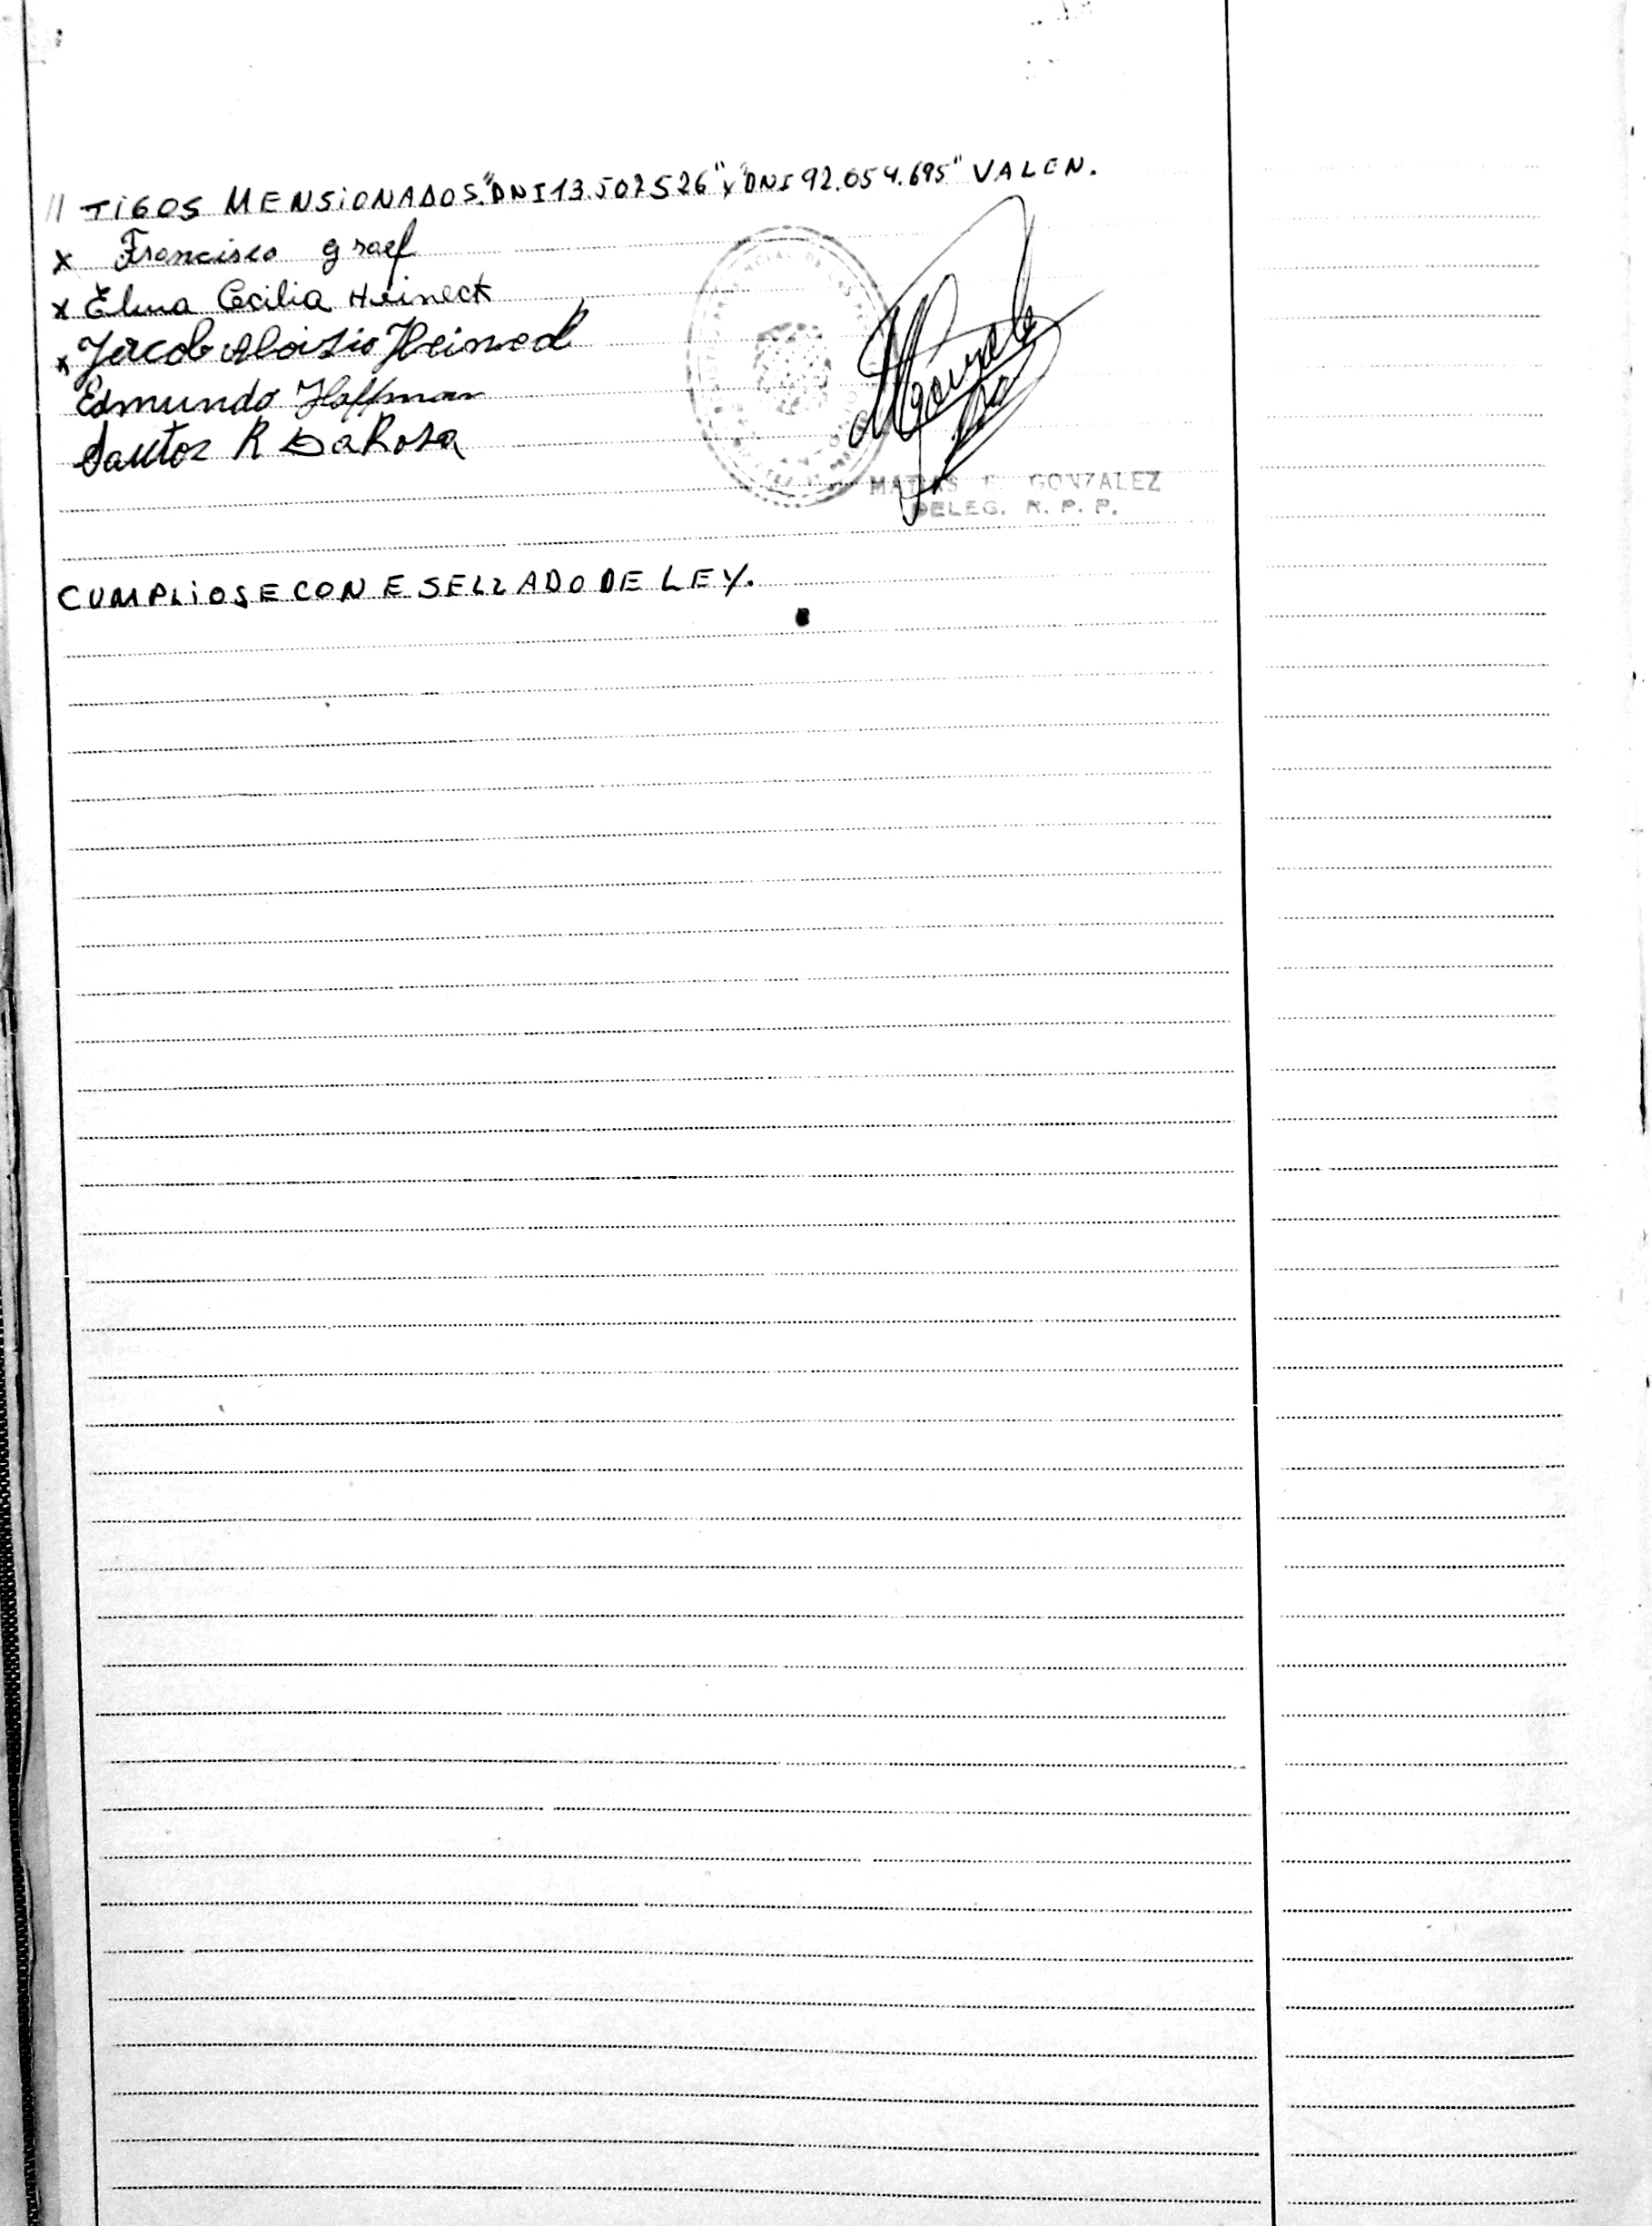 // TIGOS MENSIONADOS."DNI 13.507526" y "DNI 92.054.695" VALEN.
x Francisco graef
x Elma Cecilia Heineck
x Jacob Aloisio Heineck
Edmundo Hoffman
Santos R Da Rosa
GONZALEZ
DELEG. R. P. P.
CUMPLIOSE CON E SELLADO DE LEY.